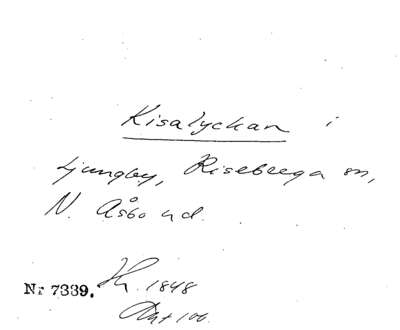 Kisalyckan i
Ljungby, Riseberga sn,
N. Åsbo hd.
Nr 7339. Hh. 1848
Akt 100.